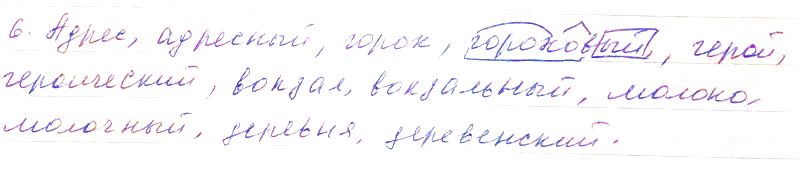 6. Адрес, адресный, горох, гороховый, герой,
героический, вокзал, вокзальный, молоко,
молочный, деревня, деревенский.